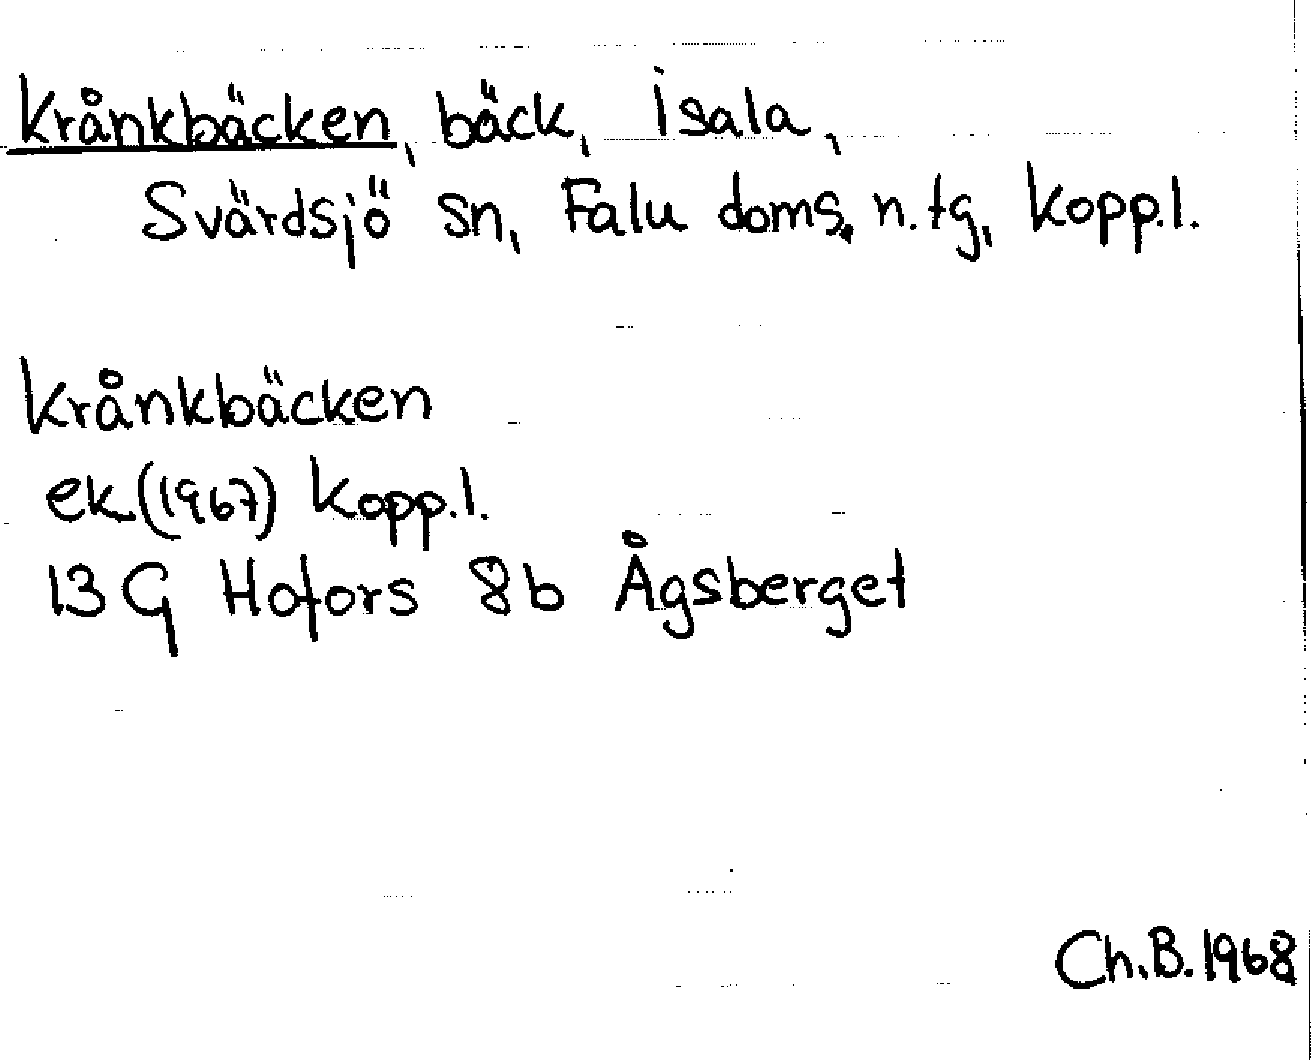 Krånkbäcken, bäck, Isala,
Svärdsjö sn, Falu doms. n.tg, Kopp.l.
Krånkbäcken
ek (1967) Kopp.l.
13 G Hofors 8b Ågsberget
Ch.B. 1968